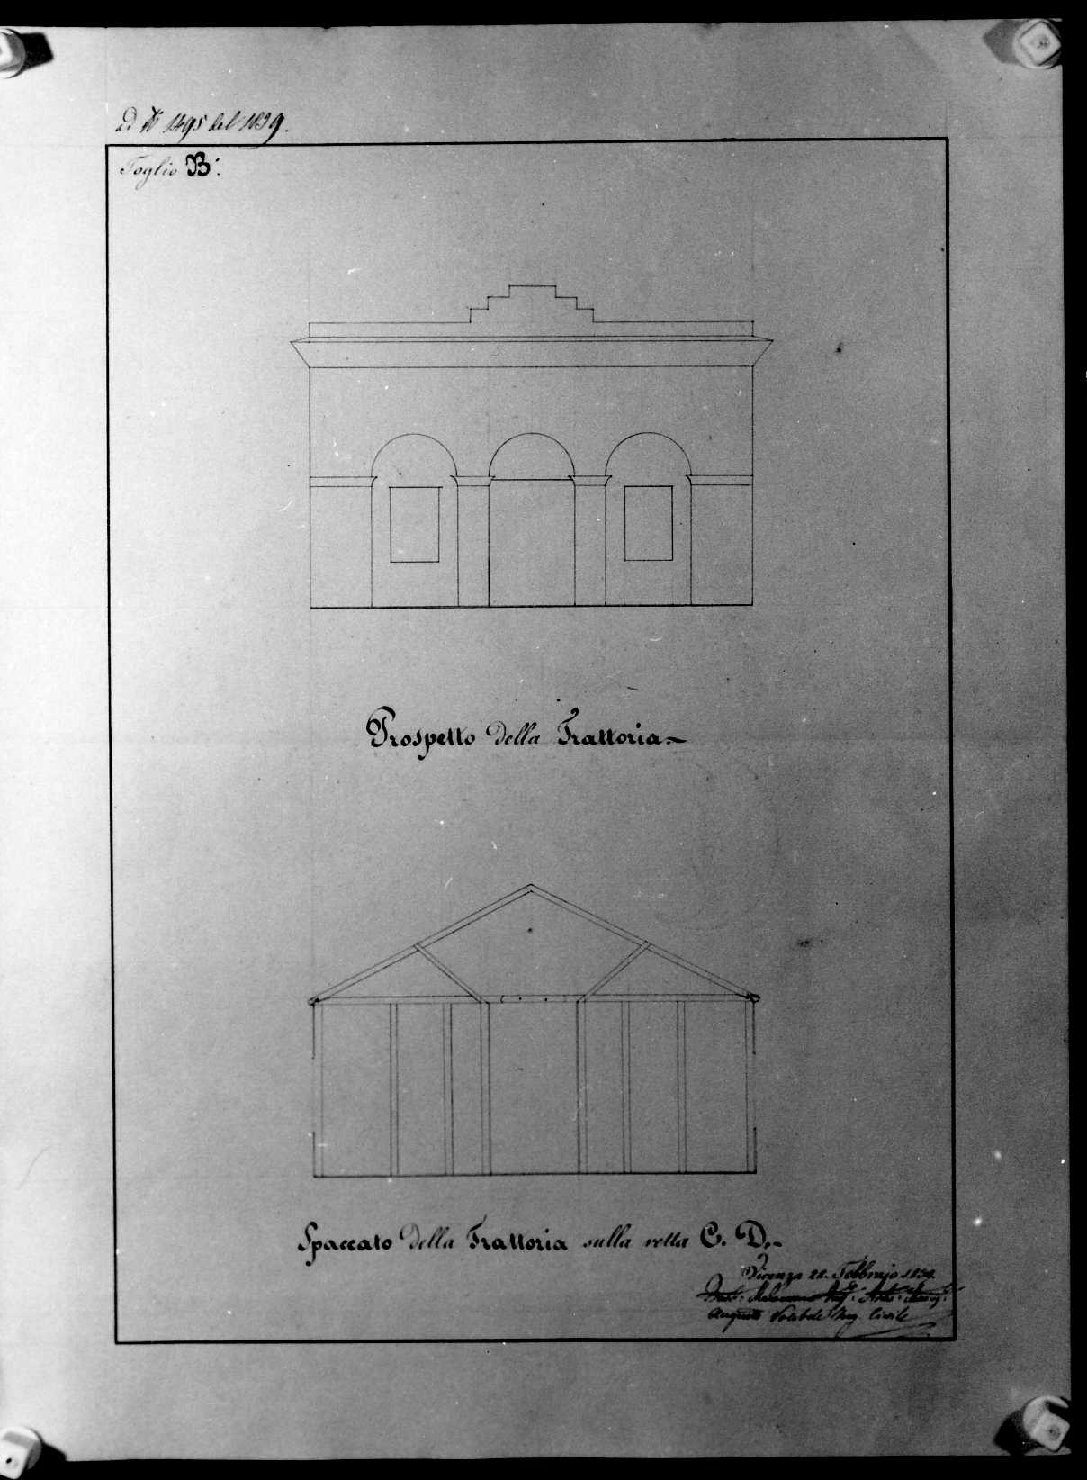 1495 del 1839.
Foglio B.
Prospetto della Trattoria
Spaccato della Trattoria sulla retta C. D.
Vicenza 21. Febbrajo
Augusto Ing. Civile